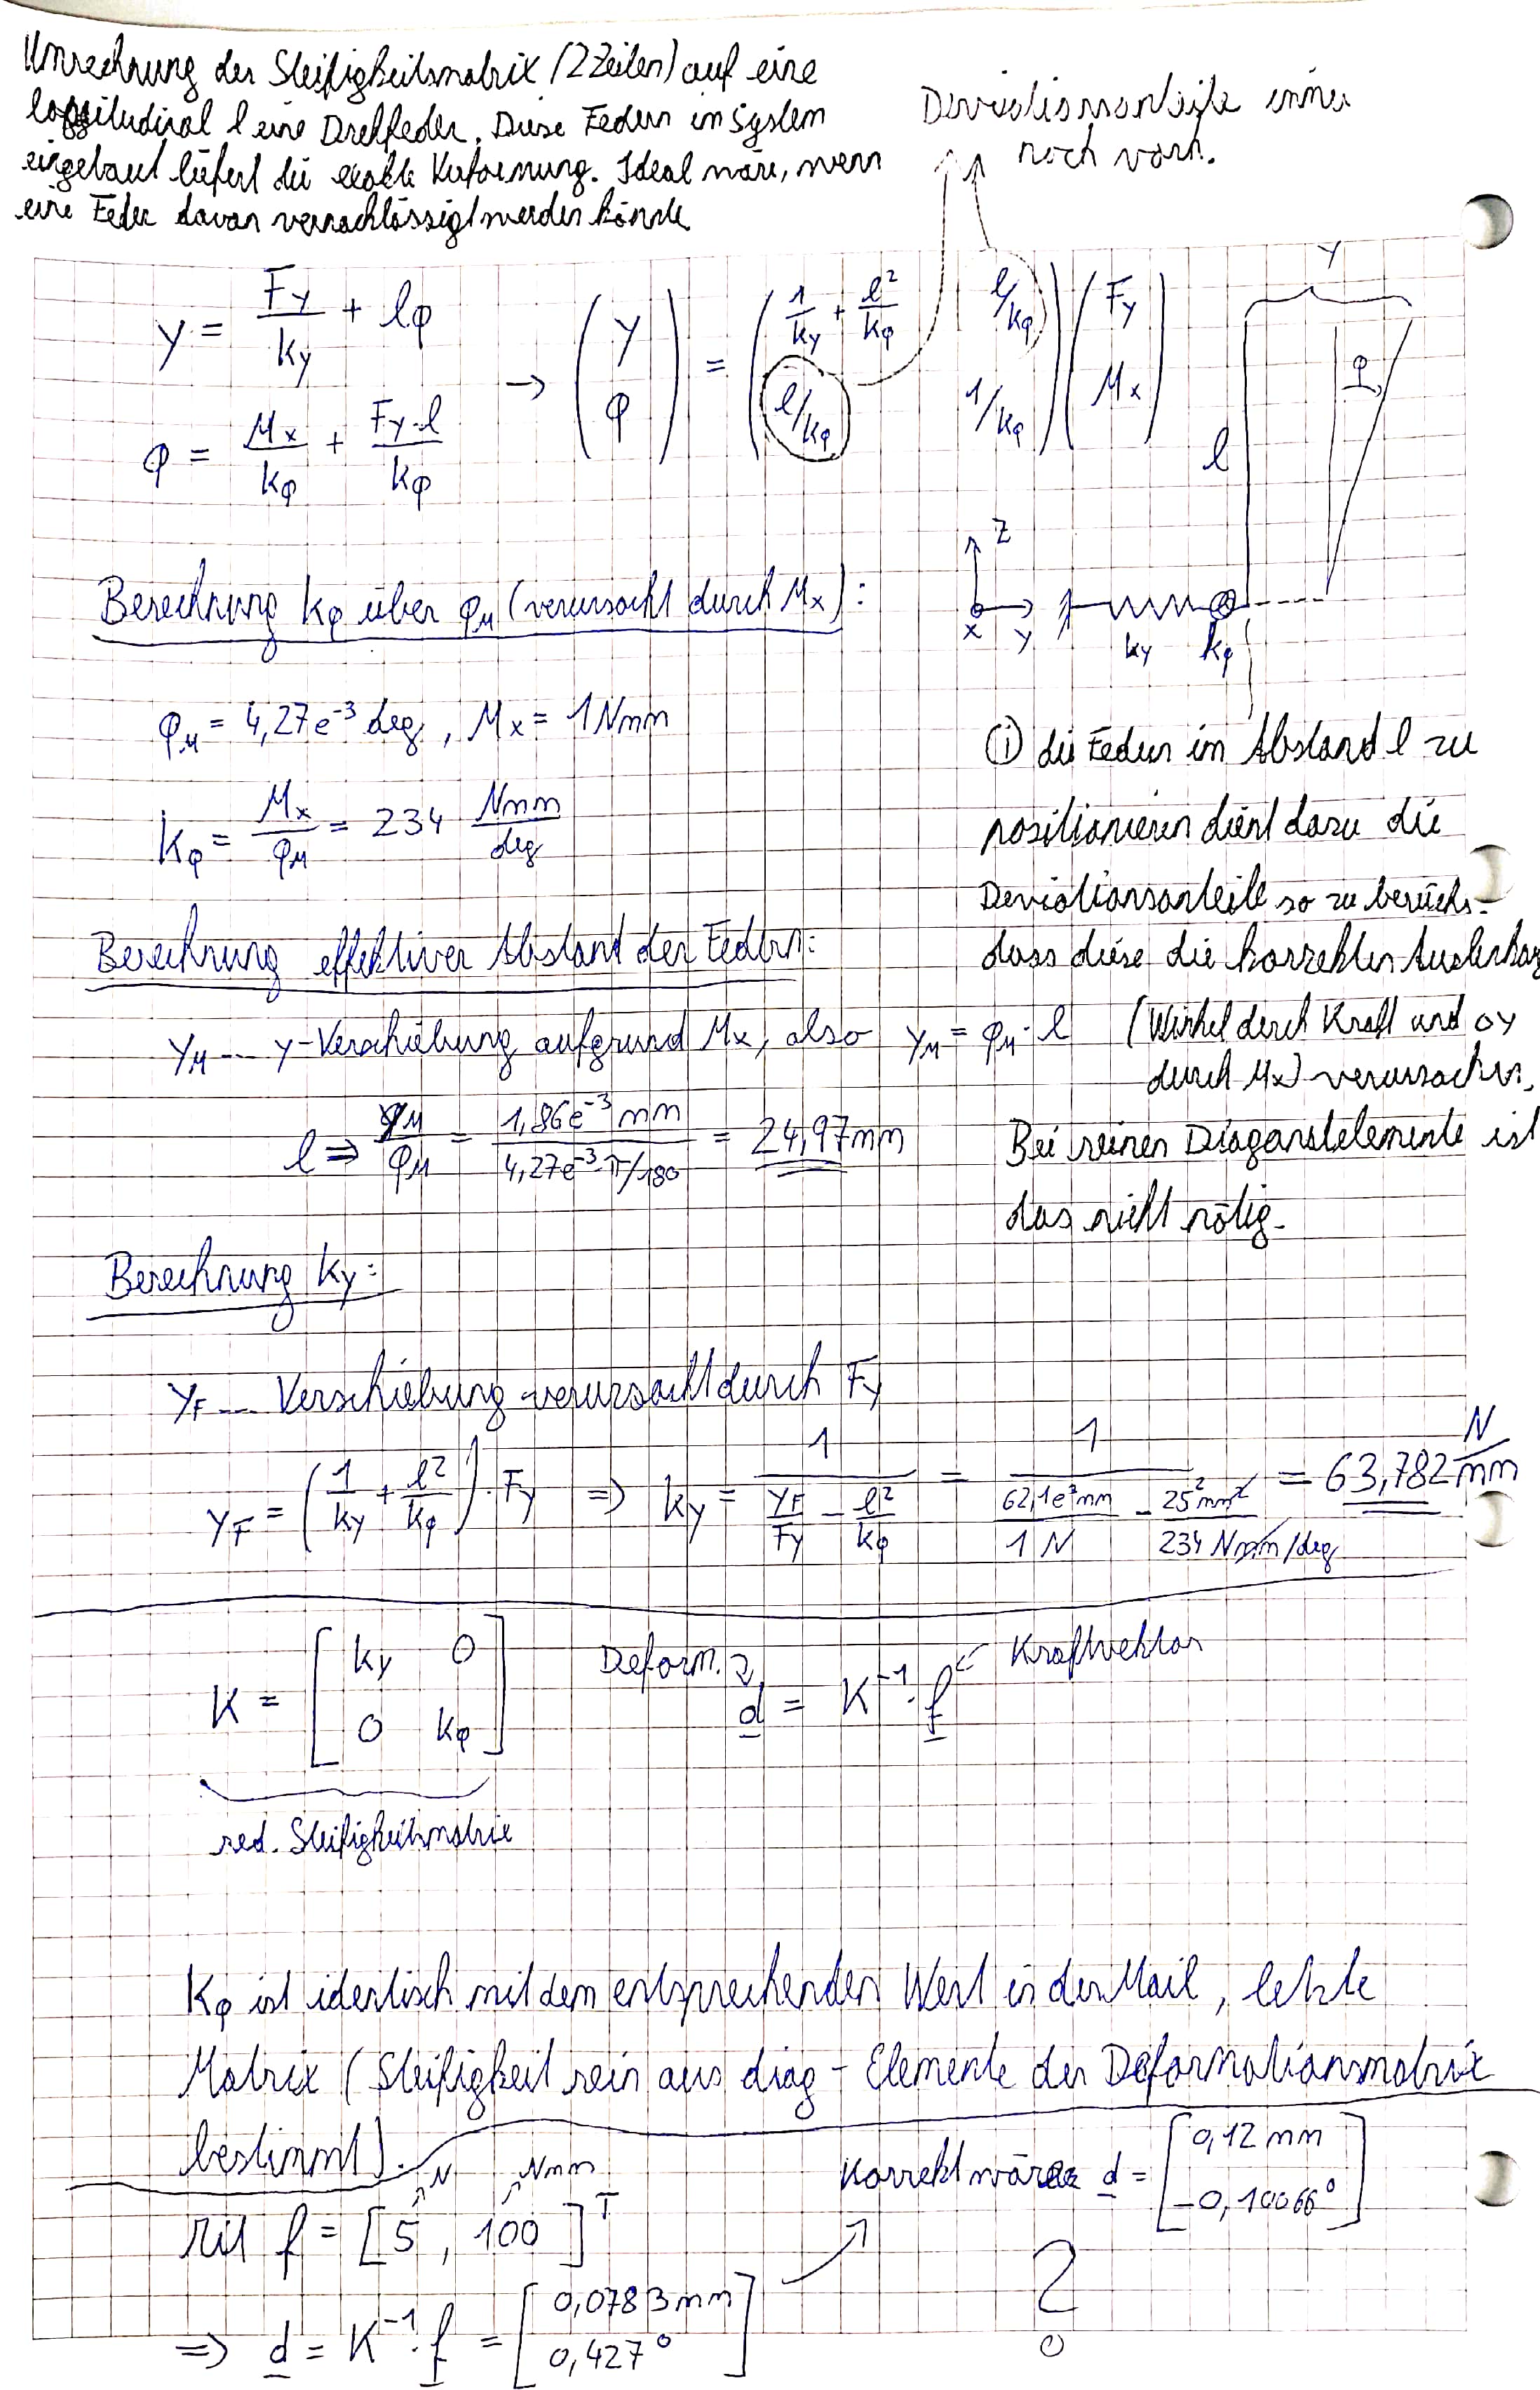 Umrechnung der Steifigkeitsmatrix (2 Zeilen) auf eine
longitudinal & eine Drehfeder. Diese Federn im System
eingebaut liefert die exakte Verformung. Ideal wäre, wenn
eine Feder davon vernachlässigt werden könnte
Deviationsanteile immer
noch vorh.
y = Fy/ky + lφ
→ (y φ) = (1/ky + l²/kφ l/kφ l/kφ 1/kφ) (Fy Mx)
φ = Mx/kφ + Fy·l/kφ
Y
φ
l
z
x y ky kφ
Berechnung kφ über φM (verursacht durch Mx):
φM = 4,27e⁻³ deg, Mx = 1Nmm
kφ = Mx/φM = 234 Nmm/deg
ⓘ die Federn im Abstand l zu
positionieren dient dazu die
Deviationsanteile so zu berücks.
dass diese die korrekten Auslenkung
(Winkel durch Kraft und Δy
durch Mx) verursachen.
Bei reinen Diagonalelemente ist
das nicht nötig.
Berechnung effektiver Abstand der Federn:
yM ... y-Verschiebung aufgrund Mx, also yM = φM · l
l ⇒ yM/φM = 1,86e⁻³mm / 4,27e⁻³·π/180 = 24,97mm
Berechnung ky:
yF ... Verschiebung verursacht durch Fy
yF = (1/ky + l²/kφ) · Fy ⇒ ky = 1/(yF/Fy − l²/kφ) = 1/(62,1e⁻³mm/1N − 25²mm²/234Nmm/deg) = 63,782 N/mm
K = [ky 0 0 kφ]
Deform. d = K⁻¹ · f ← Kraftvektor
red. Steifigkeitsmatrix
Kφ ist identisch mit dem entsprechenden Wert in der Mail, letzte
Matrix (Steifigkeit rein aus diag-Elemente der Deformationsmatrix
bestimmt).
N Nmm
Mit f = [5, 100]ᵀ
Korrekt wäre d = [0,12mm −0,10066°]
⇒ d = K⁻¹·f = [0,0783mm 0,427°]
?